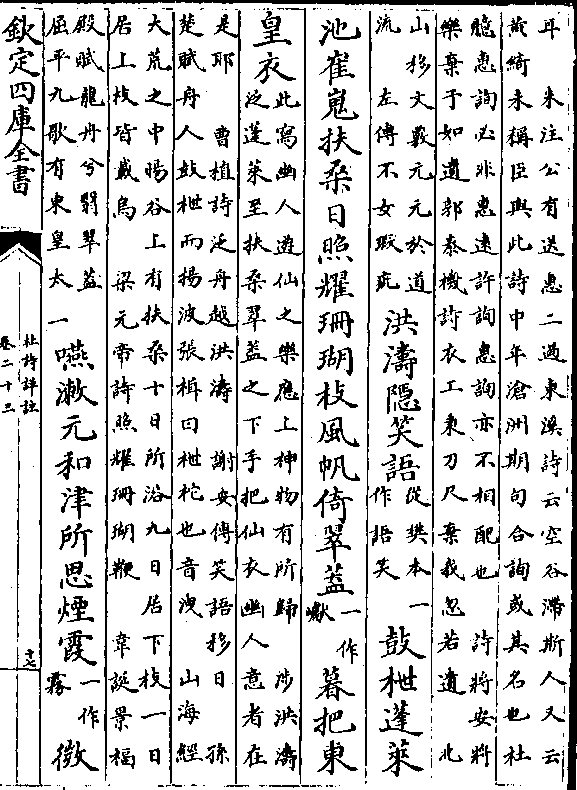 耳　朱注公有送惠二過東溪詩云空谷滯斯人又云
黄綺未稱臣與此詩中年滄洲期句合詢或其名也杜
臆惠詢必非惠遠許詢惠詢亦不相配也　詩將安將
樂棄予如遺郭泰機詩衣工秉刀尺棄我忽若遺　北
山移文覈元元於道
流　左傳不女瑕疵
洪濤隱笑語
從樊本一
作語笑
鼓枻蓬萊
池崔嵬扶桑日照耀珊瑚枝風帆倚翠蓋
一作
巘
暮把東
皇衣
此寫幽人遊仙之樂應上神物有所歸　涉洪濤
泛蓬萊至扶桑翠蓋之下手把仙衣幽人意者在
是耶　曹植詩泛舟越洪濤　謝安傳笑語移日　孫
楚賦舟人鼓枻而揚波張楫曰枻柁也音洩　山海經
大荒之中暘谷上有扶桑十日所浴九日居下枝一日
居上枝皆戴烏　梁元帝詩照耀珊瑚鞭　韋誕景福
殿賦龍舟兮翳翠蓋
屈平九歌有東皇太一
嚥漱元和津所思煙霞
一作
霧
微
欽定四庫全書
杜詩詳註
卷二十三
十七